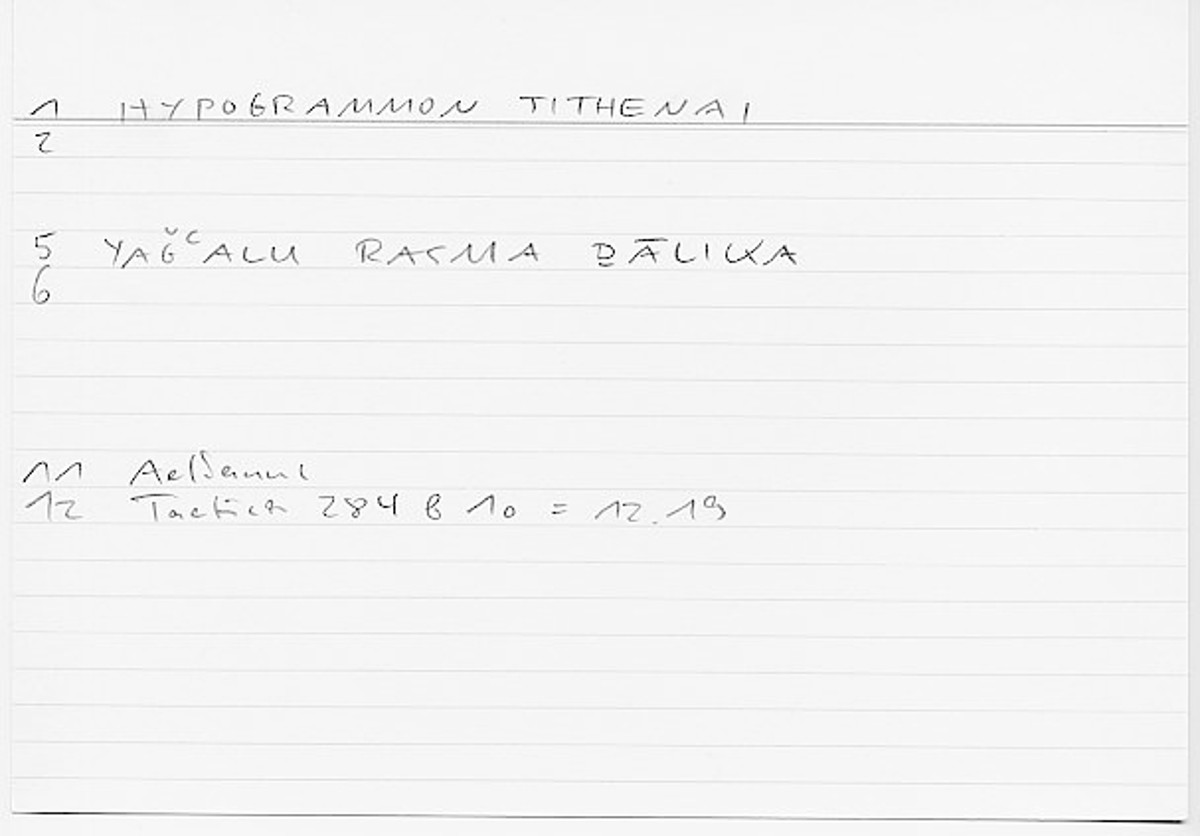 1 HYPOGRAMMON TITHENAI
2
5 YAǦʿALU RASMA ḎĀLIKA
6
11
12 Tactica 284 B 10 = 12.19